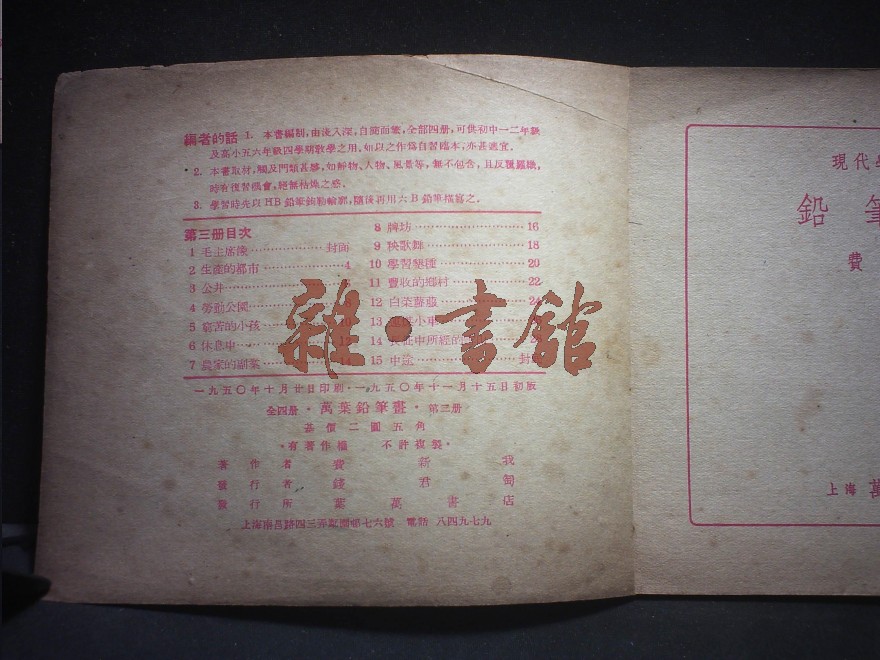 編者的話 1. 本書編制,由淺入深,自簡而繁,全部四册,可供初中一二年級
及高小五六年級四學期敎學之用,如以之作爲自習臨本,亦甚適宜。
2. 本書取材,觸及門類甚夥,如靜物、人物、風景等,無不包含,且反覆羅織,
時有復習機會,絕無枯燥之感。
3. 學習時先以HB鉛筆鈎勒輪廓,隨後再用六B鉛筆描寫之。
第三册目次
1 毛主席像 封面
2 生產的都市 4
3 公井
4 勞動公園
5 窮苦的小孩 10
6 休息中 12
7 農家的副業 14
8 牌坊 16
9 秧歌舞 18
10 學習墾種 20
11 豐收的鄉村 22
12 白菜蘿蔔 24
13 小車
14 長征中所經的
15 中途 封
一九五〇年十月廿日印刷・一九五〇年十一月十五日初版
全四册・萬葉鉛筆畫・第三册
基價二圓五角
・有著作權 不許複製・
著作者 費新我
發行者 錢君匋
發行所 萬葉書店
上海南昌路四三弄鄰園邨七六號 電話 八四九七九
雜・書館
現代
鉛筆
費
上海 萬